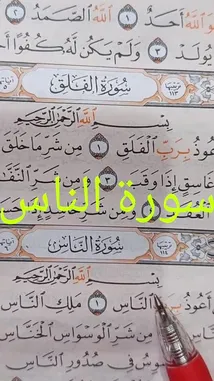 اللَّهُ أَحَدٌ ١ اللَّهُ الصَّمَدُ ٢
يُولَدْ ٣ وَلَمْ يَكُن لَّهُ كُفُوًا
سُورَةُ الفَلَقِ
بِسْمِ اللَّهِ الرَّحْمَنِ الرَّحِيمِ
بِرَبِّ الْفَلَقِ ١ مِن شَرِّ مَا خَلَقَ
غَاسِقٍ إِذَا وَقَبَ ٣ مِن شَرِّ
سورة الناس
وَمِن شَرِّ
سُورَةُ النَّاسِ
بِسْمِ اللَّهِ الرَّحْمَنِ الرَّحِيمِ
أَعُوذُ بِرَبِّ النَّاسِ ١ مَلِكِ النَّاسِ
مِن شَرِّ الْوَسْوَاسِ الْخَنَّاسِ
فِي صُدُورِ النَّاسِ